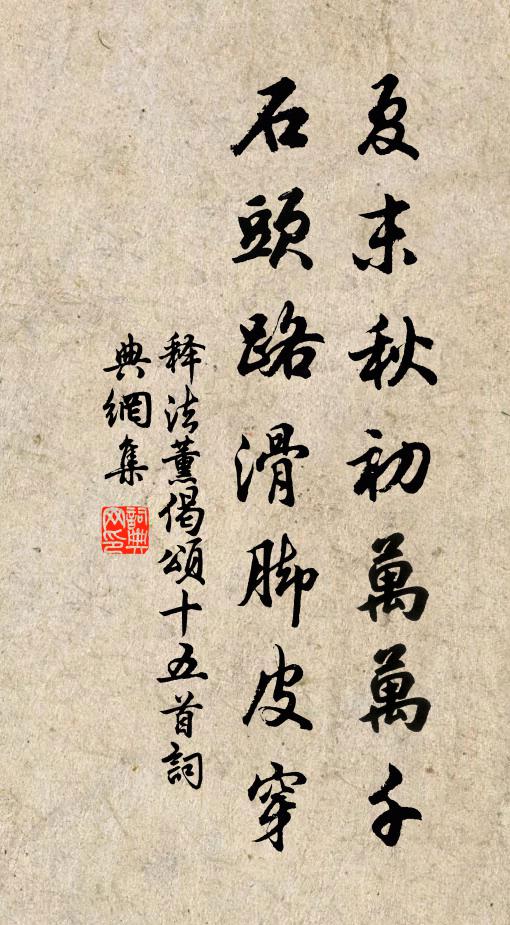 夏末秋初萬萬千
石頭路滑脚皮穿
释法薰偈頌十五首詞
典網集
詞典网印